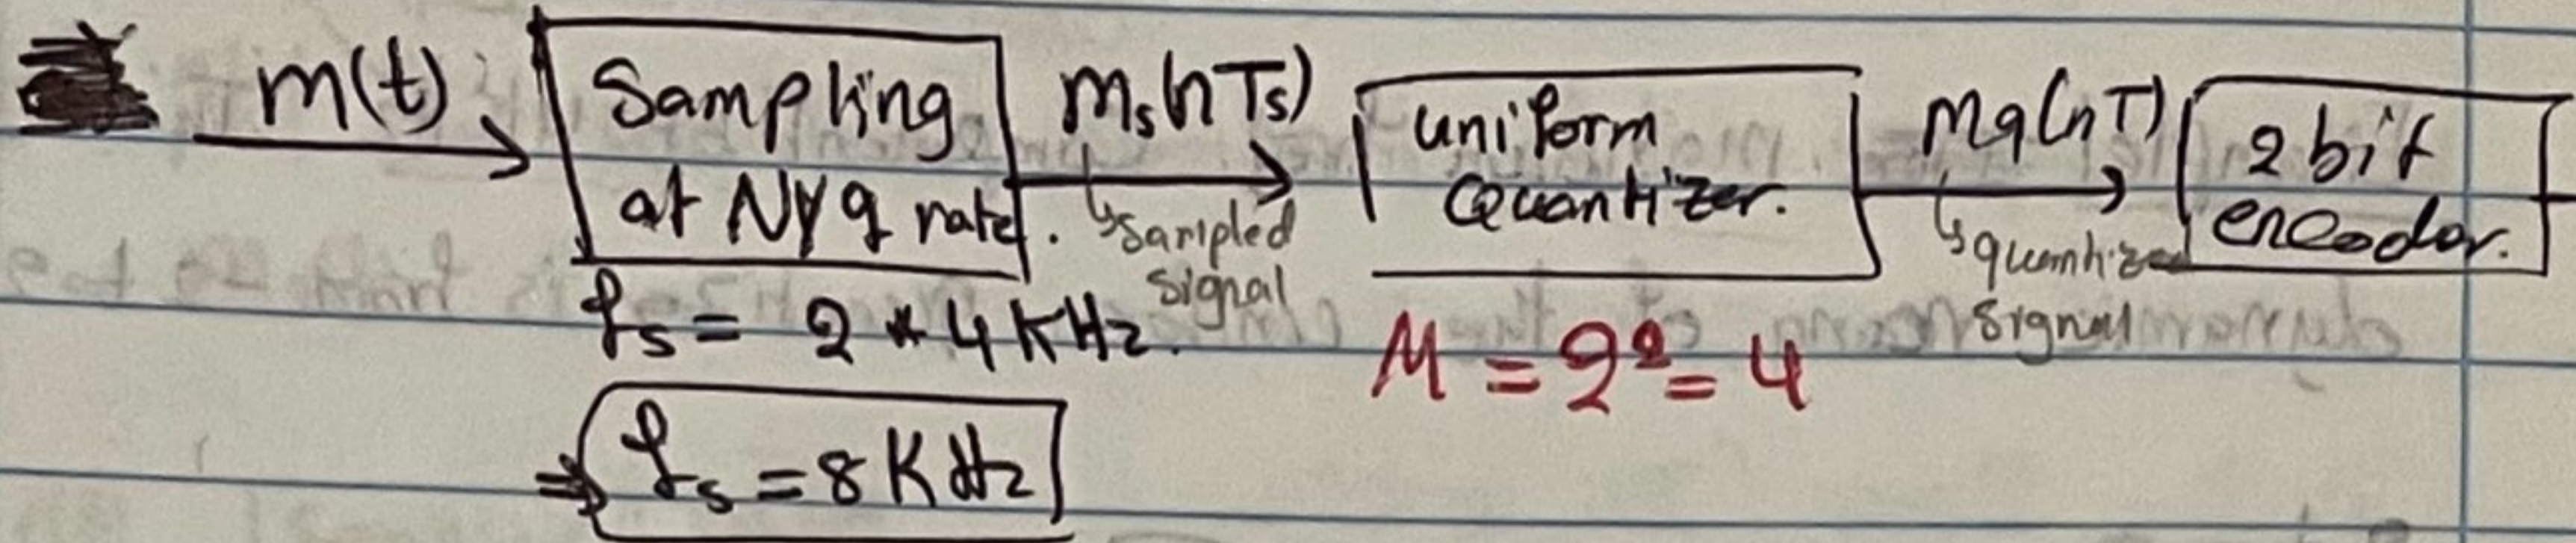 m(t)
Sampling
at Nyq rate.
ms(nTs)
Sampled
signal
uniform
Quantizer.
Mq(nT)
quantized
Signal
2 bit
encodor.
fs = 2 * 4 KHz.
M = 2² = 4
⇒ fs = 8 KHz